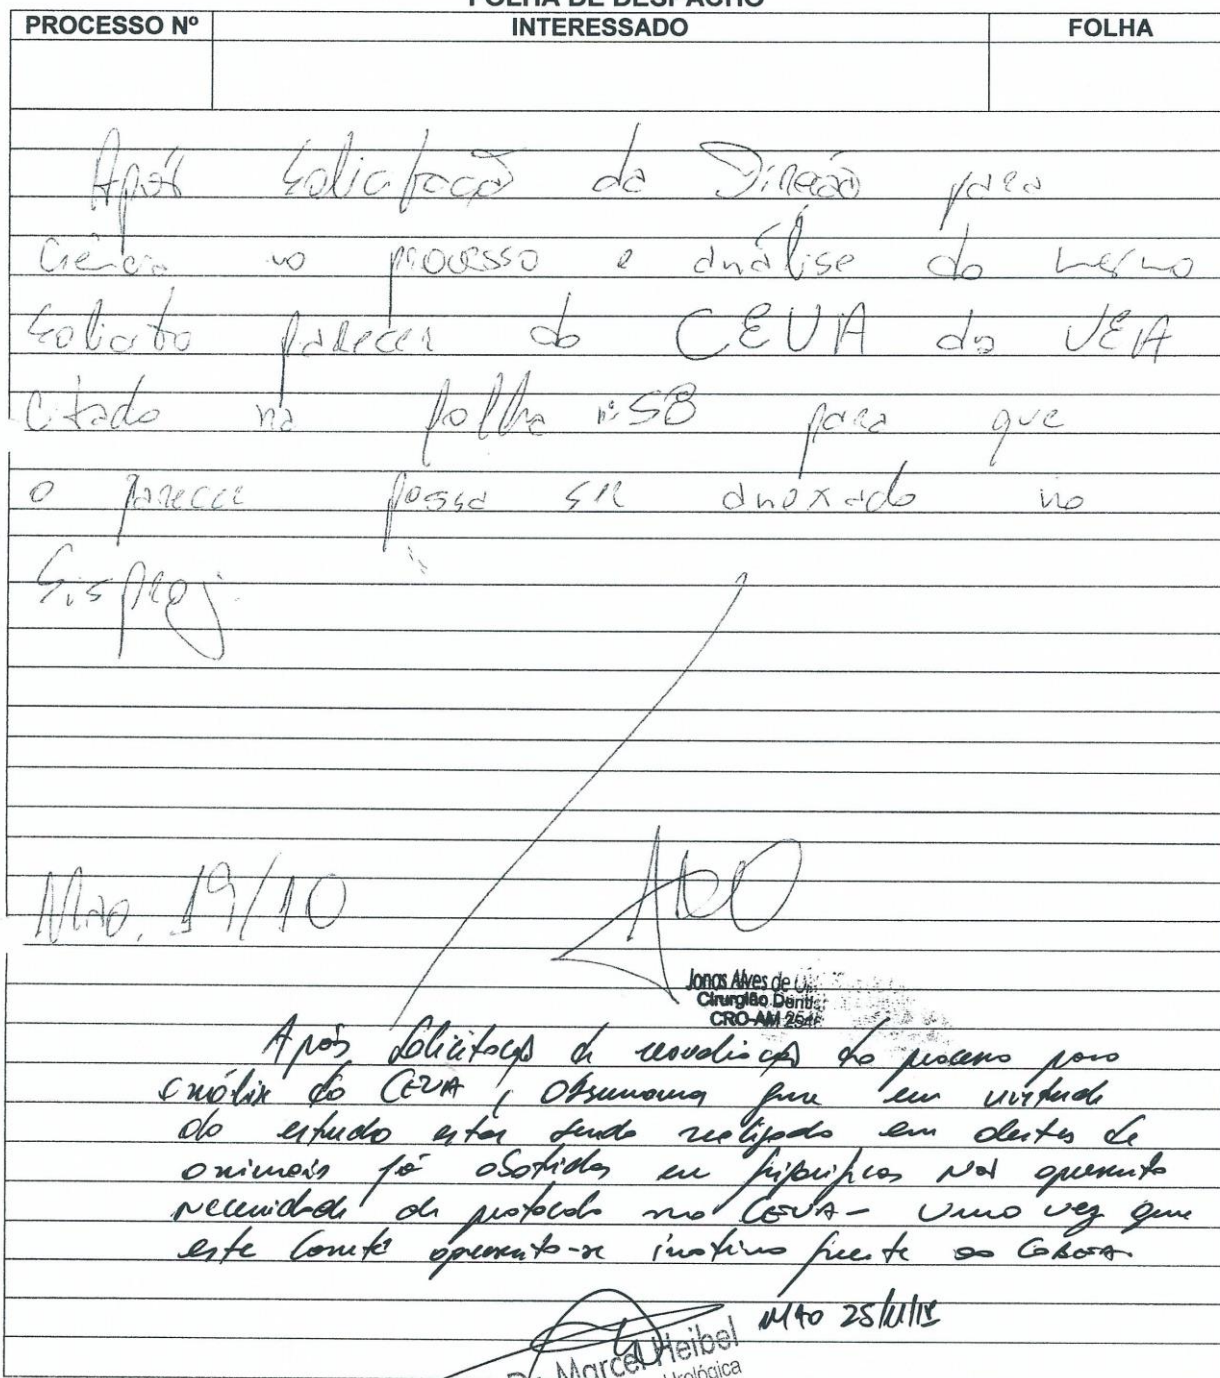 FOLHA DE DESPACHO
PROCESSO Nº INTERESSADO FOLHA
Após Solicitação da Direção para
Ciência no processo e análise do mesmo
Solicito parecer do CEUA da UEA
Citado na folha nº 58 para que
o parecer possa ser anexado no
Sisproj.
Mao, 19/10
Jonas Alves de
Cirurgião Dentis
CRO-AM 254
Após Solicitação de reavaliação do processo para
análise do CEUA, Observamos que em virtude
do estudo estar sendo realizado em dentes de
animais já obtidos em frigoríficos não apresenta
necessidade de protocolo no CEUA - Uma vez que
este Comitê apresenta-se inativo frente ao
Mao 25/11/
Dr. Marcel Heibel